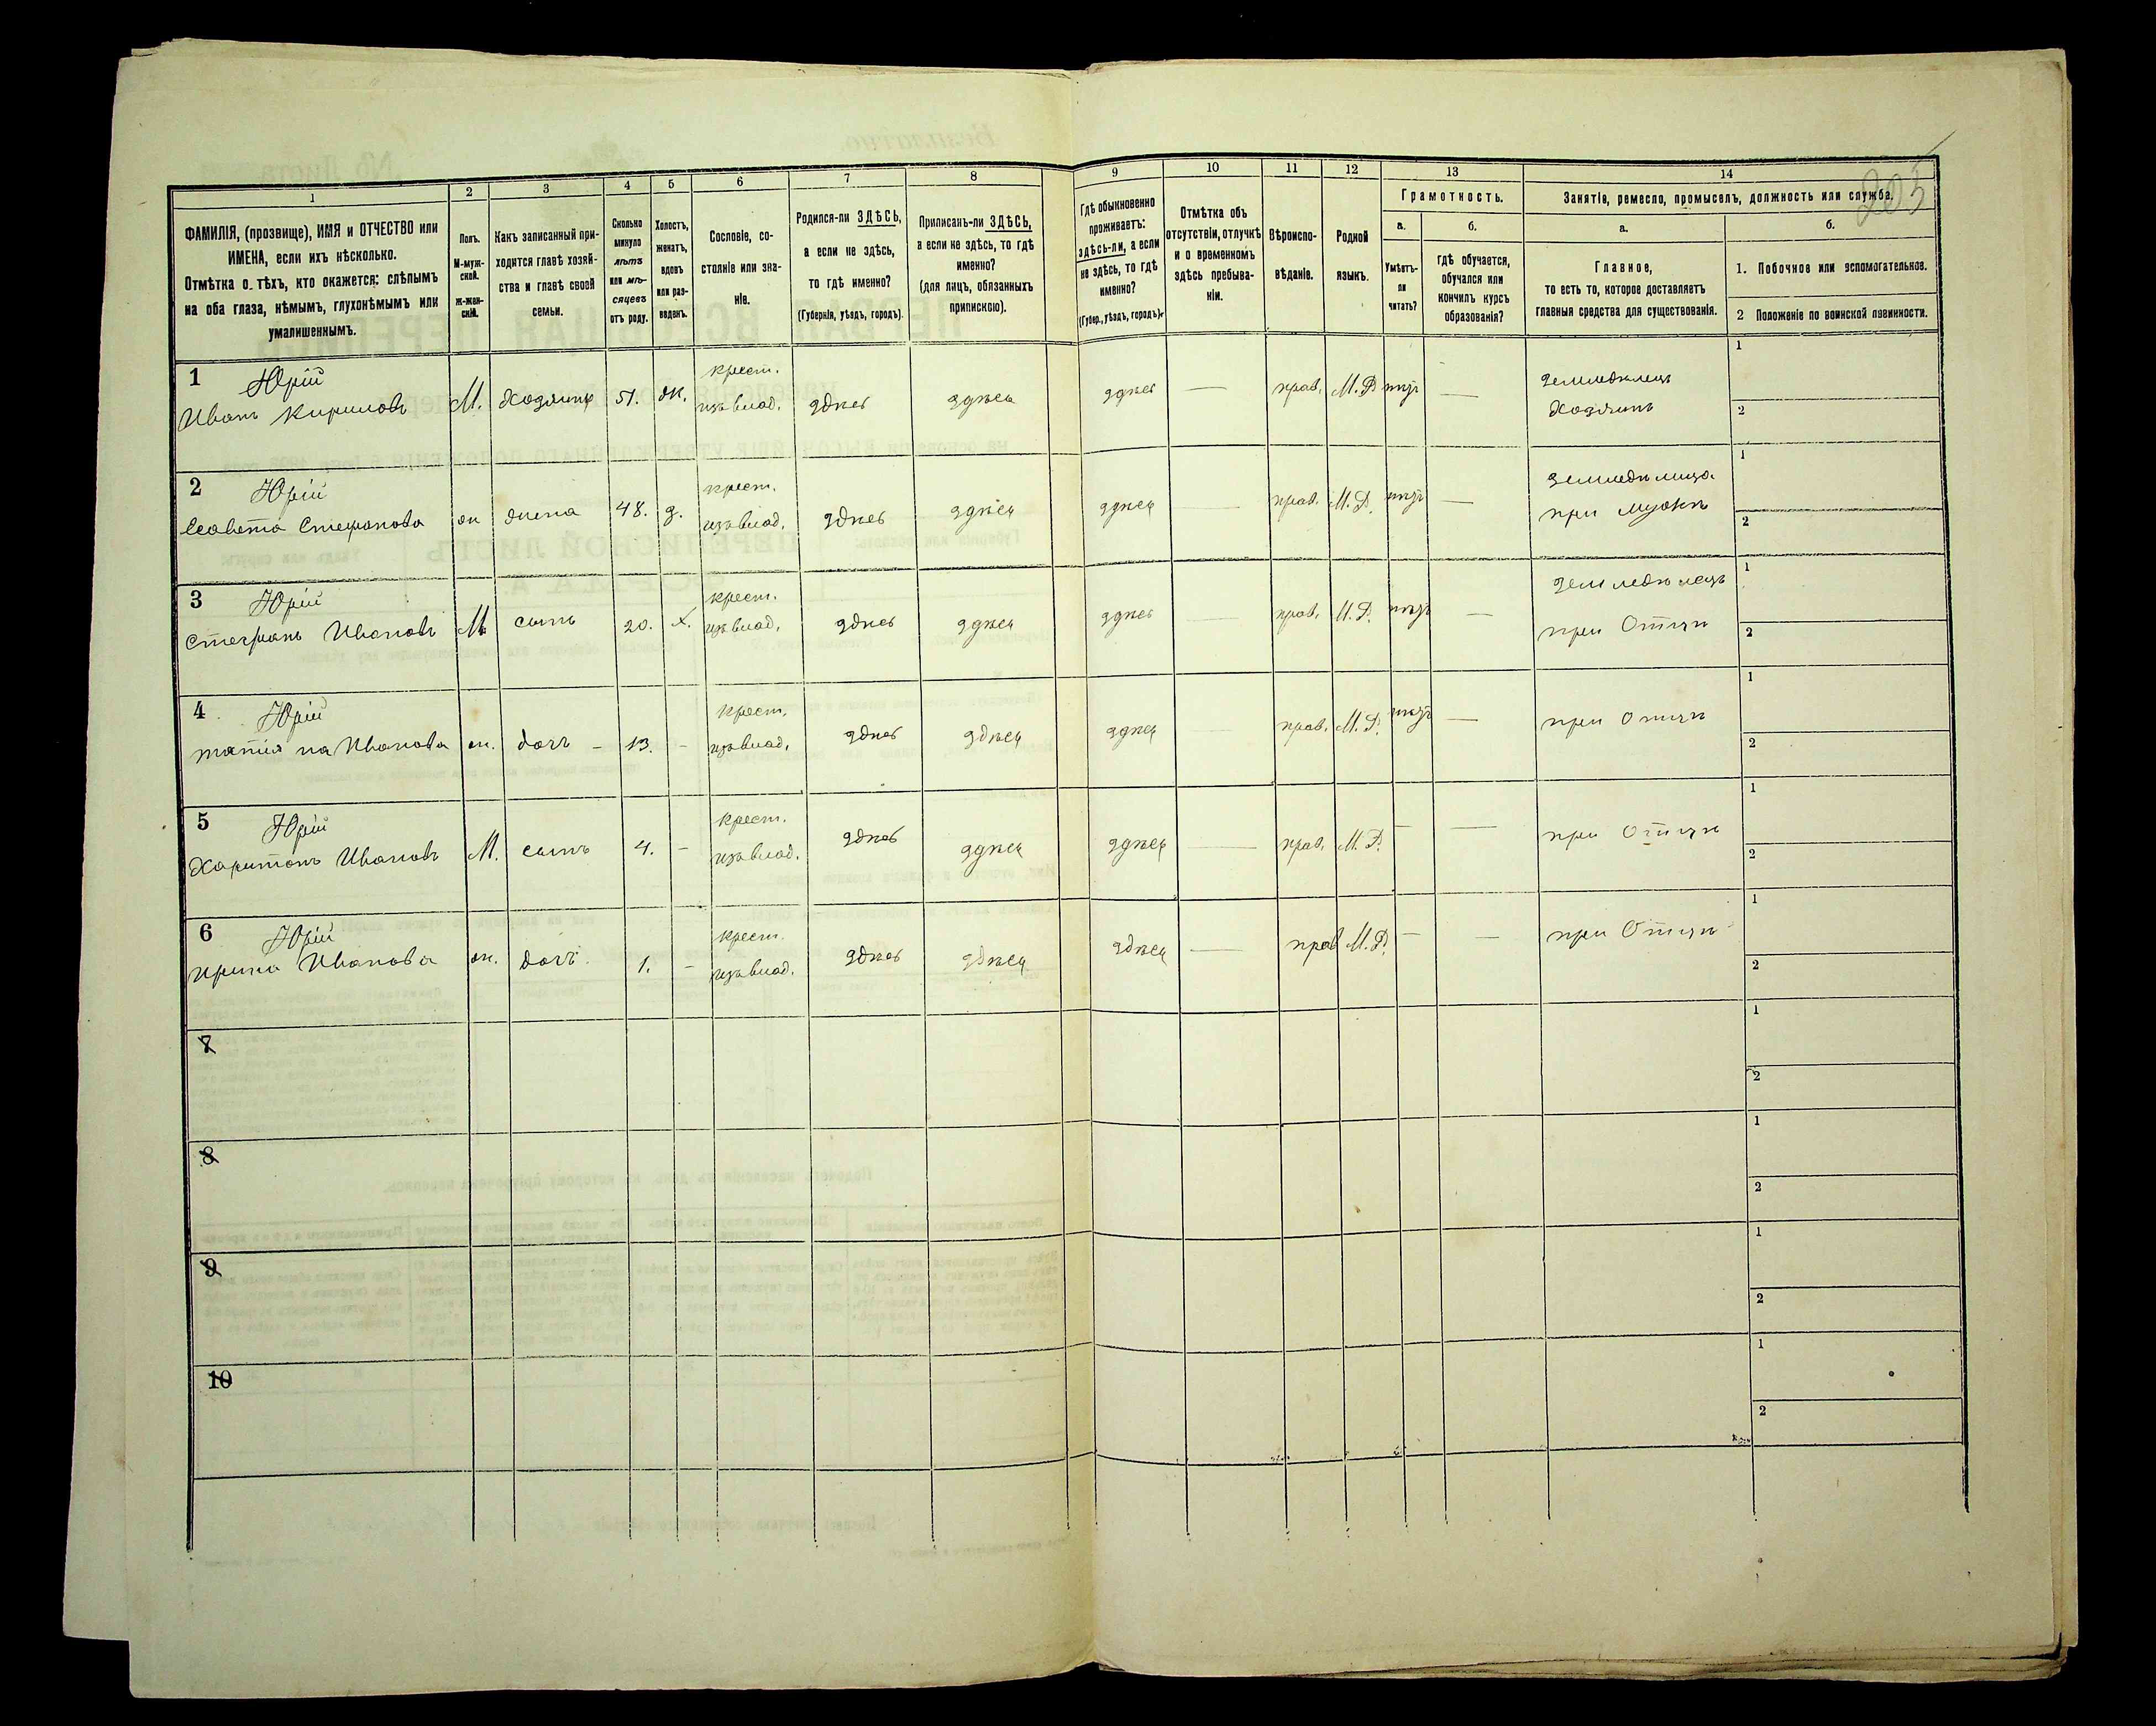 205
1 2 3 4 5 6 7 8 9 10 11 12 13 14
ФАМИЛІЯ, (прозвище), ИМЯ и ОТЧЕСТВО или
ИМЕНА, если ихъ нѣсколько.
Отмѣтка о тѣхъ, кто окажется: слѣпымъ
на оба глаза, нѣмымъ, глухонѣмымъ или
умалишеннымъ.
Полъ.
М-муж-
ской.
Ж-жен-
скій.
Какъ записанный при-
ходится главѣ хозяй-
ства и главѣ своей
семьи.
Сколько
минуло
лѣтъ
или мѣ-
сяцевъ
отъ роду.
Холостъ,
женатъ,
вдовъ
или раз-
веденъ.
Сословіе, со-
стояніе или зва-
ніе.
Родился-ли ЗДѢСЬ,
а если не здѣсь,
то гдѣ именно?
(Губернія, уѣздъ, городъ).
Приписанъ-ли ЗДѢСЬ,
а если не здѣсь, то гдѣ
именно?
(для лицъ, обязанныхъ
припискою).
Гдѣ обыкновенно
проживаетъ:
здѣсь-ли, а если
не здѣсь, то гдѣ
именно?
(Губер., уѣздъ, городъ).
Отмѣтка объ
отсутствіи, отлучкѣ
и о временномъ
здѣсь пребыва-
ніи.
Вѣроиспо-
вѣданіе.
Родной
языкъ.
Грамотность.
а.
Умѣетъ-
ли
читать?
б.
Гдѣ обучается,
обучался или
кончилъ курсъ
образованія?
Занятіе, ремесло, промыселъ, должность или служба.
а.
Главное,
то есть то, которое доставляетъ
главныя средства для существованія.
б.
1. Побочное или вспомогательное.
2 Положеніе по воинской повинности.
1 Юрій крест. земледѣлецъ 1
Иванъ Кириловъ М. Хозяинъ 51. ж. изъ влад. здѣсь здѣсь здѣсь — прав. М. Р. — Хозяинъ 2
2 Юрій крест. земледѣлица 1
Есавета Стефанова ж жена 48. з. изъ влад. здѣсь здѣсь здѣсь — прав. М. Р. — при мужѣ 2
3 Юрій крест. земледѣлецъ 1
Стефанъ Ивановъ М сынъ 20. х. изъ влад. здѣсь здѣсь здѣсь — прав. М. Р. — при Отцѣ 2
4 Юрій крест. 1
татіяна Иванова ж. дочь - 13. - изъ влад. здѣсь здѣсь здѣсь — прав. М. Р. — при отцѣ 2
5 Юрій крест. 1
Харитонъ Ивановъ М. сынъ 4. - изъ влад. здѣсь здѣсь здѣсь — прав. М. Р. — — при отцѣ 2
6 Юрій крест. 1
ирина Иванова ж. дочь 1. - изъ влад. здѣсь здѣсь здѣсь — прав М. Р. — — при Отцѣ 2
7 1
2
8 1
2
9 1
2
10 1
2